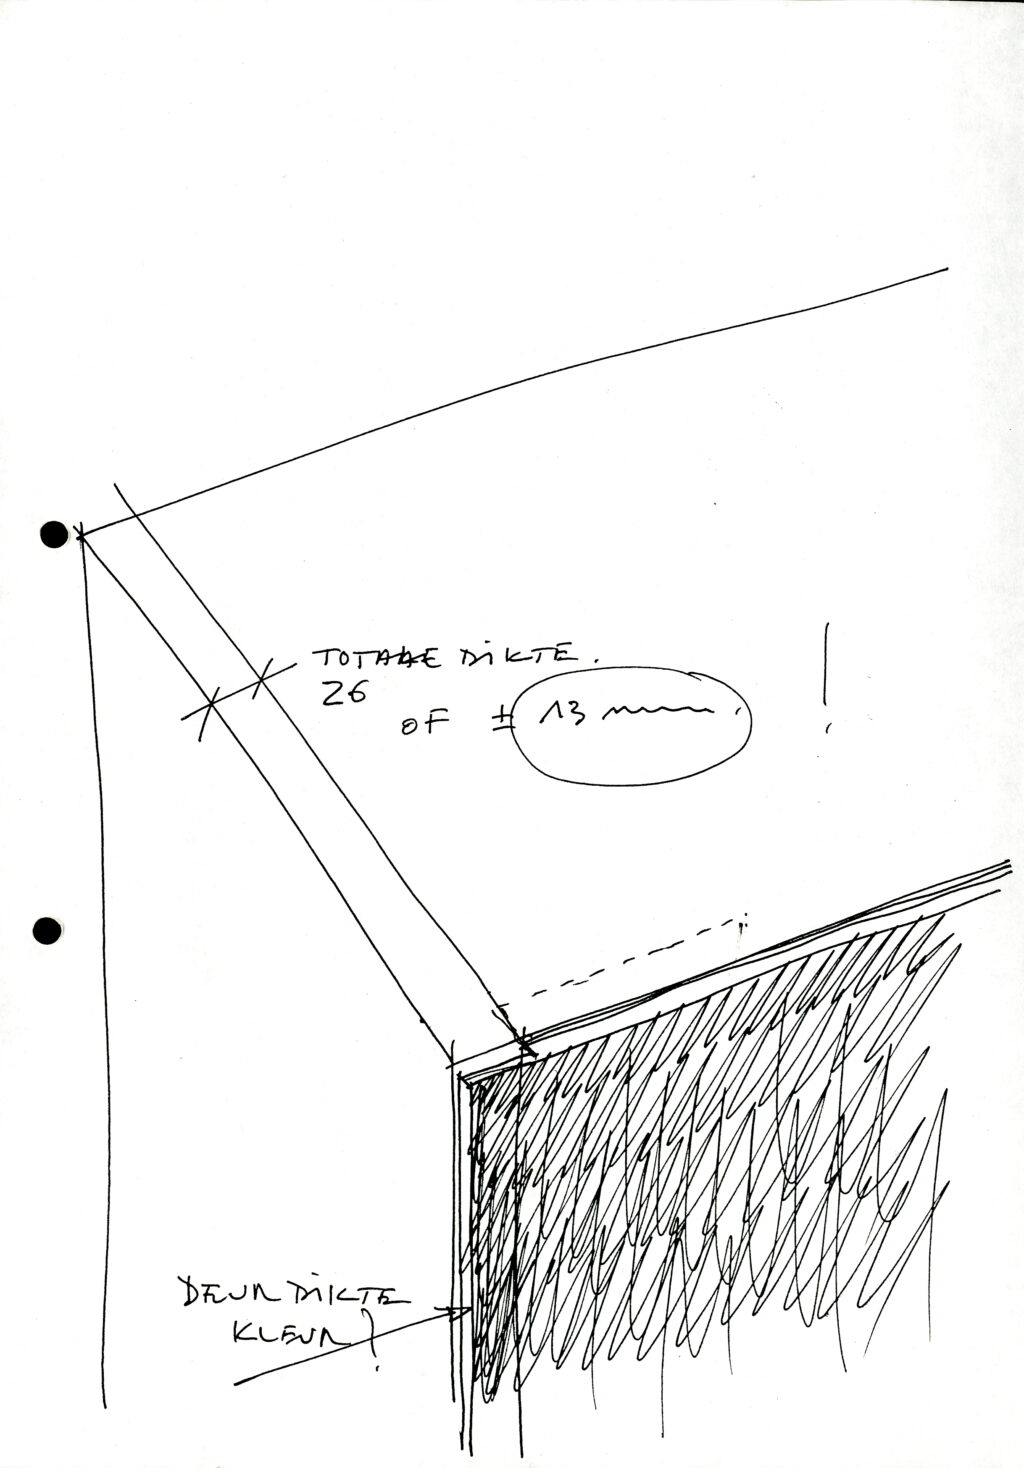 TOTALE DIKTE.
26
OF ± 13 mm. !
DEUR DIKTE
KLEUR?